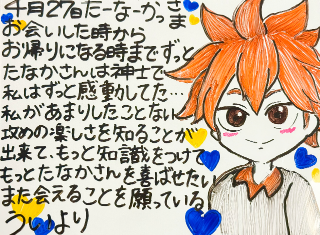 4月27日たーなーかっさま
お会いした時から
お帰りになる時までずっと
たなかさんは神士で
私はずっと感動してた…
私があまりしたことない
攻めの楽しさを知ることが
出来て、もっと知識をつけて
もっとたなかさんを喜ばせたい
また会えることを願っている
ういより